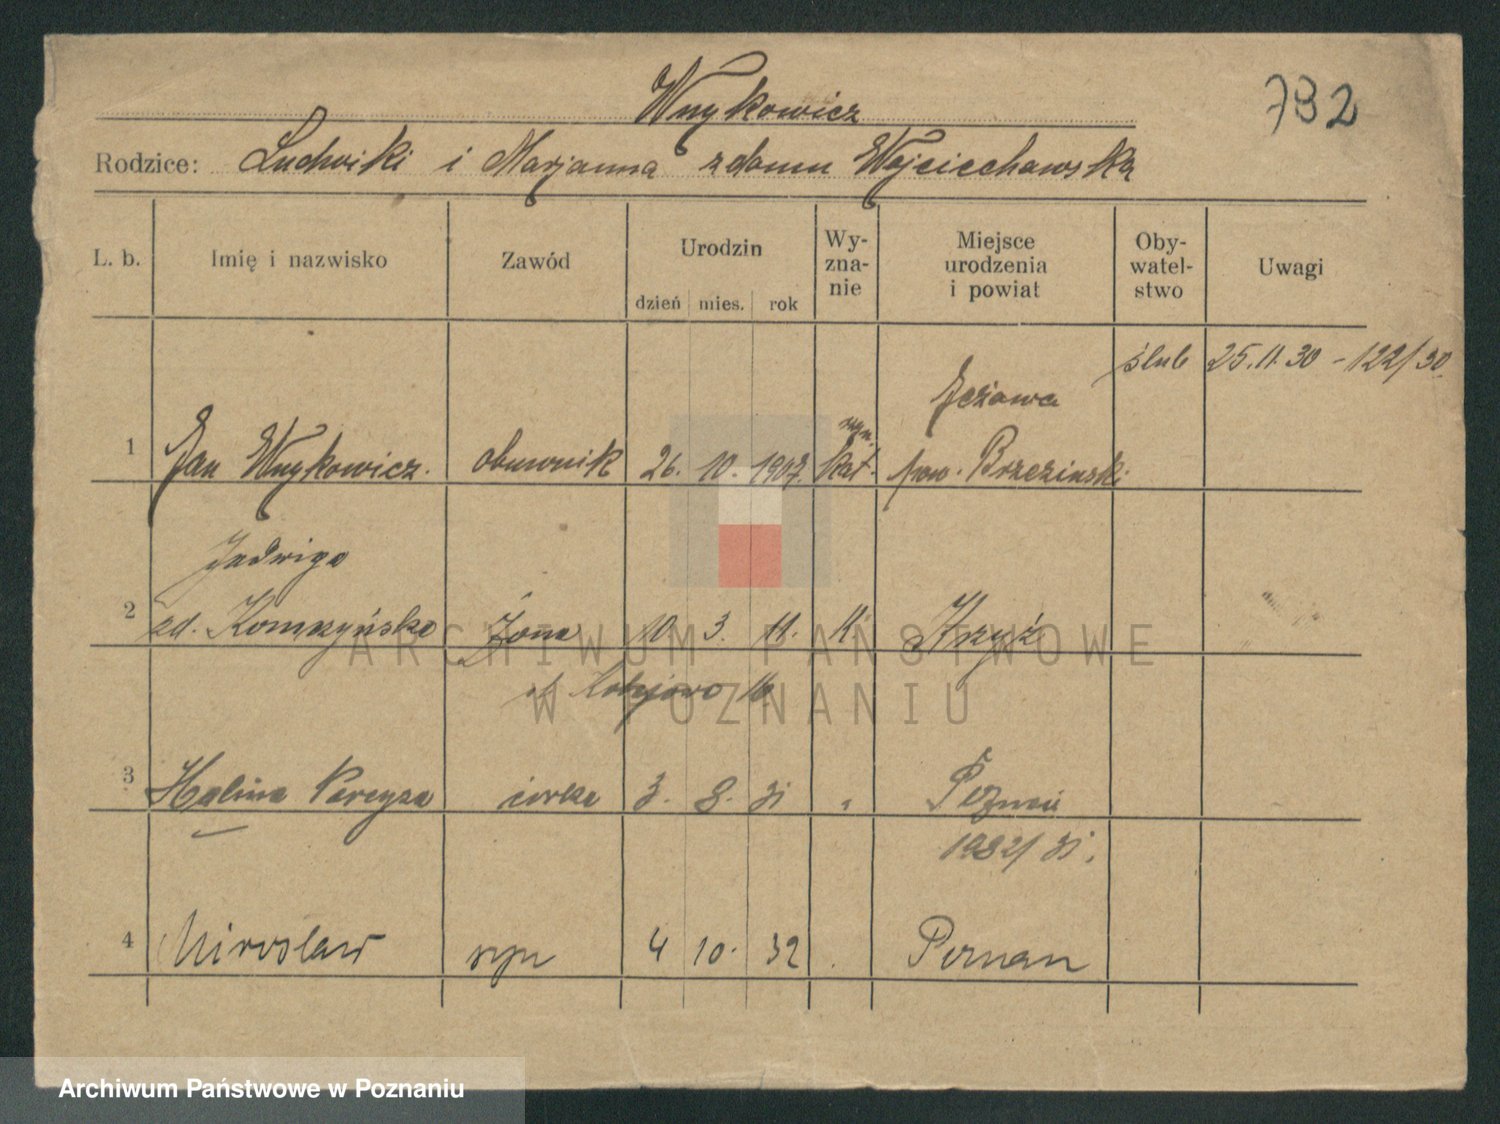 Wnykowicz
782
Rodzice: Ludwiki i Marjanna z domu Wojciechowska
L. b. Imię i nazwisko Zawód Urodzin dzień mies. rok Wy-zna-nie Miejsce urodzenia i powiat Oby-watel-stwo Uwagi
ślub 25.11.30 - 122/30
Jeżowa
1 Jan Wnykowicz. obuwnik 26. 10. 1907. rzym. kat. pow. Brzezinski
Jadwiga
2 zd. Żona 10. 3. 11. K Krzyż
16
3 Halina córka 3. 8. 31 " Poznań
1932/31.
4 Miroslaw syn 4 10. 32 Poznan
ARCHIWUM PAŃSTWOWE
W POZNANIU
Archiwum Państwowe w Poznaniu